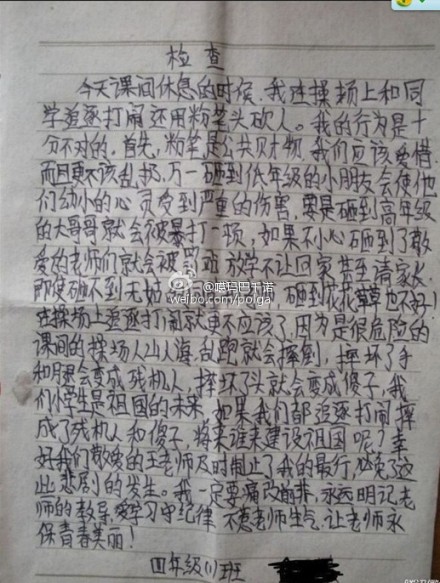 检查
今天课间休息的时候，我在操场上和同
学追逐打闹还用粉笔头砍人。我的行为是十
分不对的。首先，粉笔是公共财物，我们应该爱惜
而且更不该乱扔，万一砸到低年级的小朋友会使他
们幼小的心灵受到严重的伤害，要是砸到高年级
的大哥哥就会被暴打一顿，如果不小心砸到了敬
爱的老师们就会被罚站 放学不让回家甚至请家长
即使砸不到 砸到花花草草也不好
在操场上追逐打闹就更不应该了，因为是很危险的
课间的操场人山人海，乱跑就会摔倒，摔坏了手
和腿会变成残机人，摔坏了头就会变成傻子，我
们小学生是祖国的未来，如果我们都追逐打闹摔
成了残机人和傻子，将来谁来建设祖国呢？幸
好我们敬爱的王老师及时制止了我的暴行，避免了这
些悲剧的发生。我一定要痛改前非，永远明记老
师的教导，爱学习守纪律 不惹老师生气，让老师永
保青春美丽！
四年级(1)班
@喷码巴千诺
weibo.com/polga